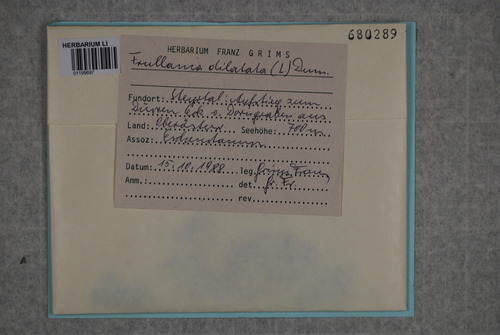 680289
HERBARIUM LI
01199697
HERBARIUM FRANZ GRIMS
Frullania dilatata (L.) Dum.
Fundort: Aufstieg zum
aus
Land: Oberösterr. Seehöhe: 700 m
Assoz: Eschenstamm
Datum: 15.10.1988 leg. Grims Franz
Anm.: det. Gr. Fr.
rev.